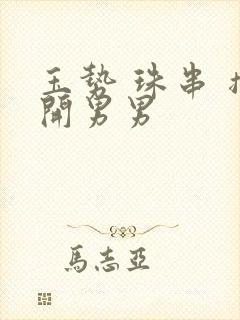 玉势 珠串 扌
開男男
馬志亞